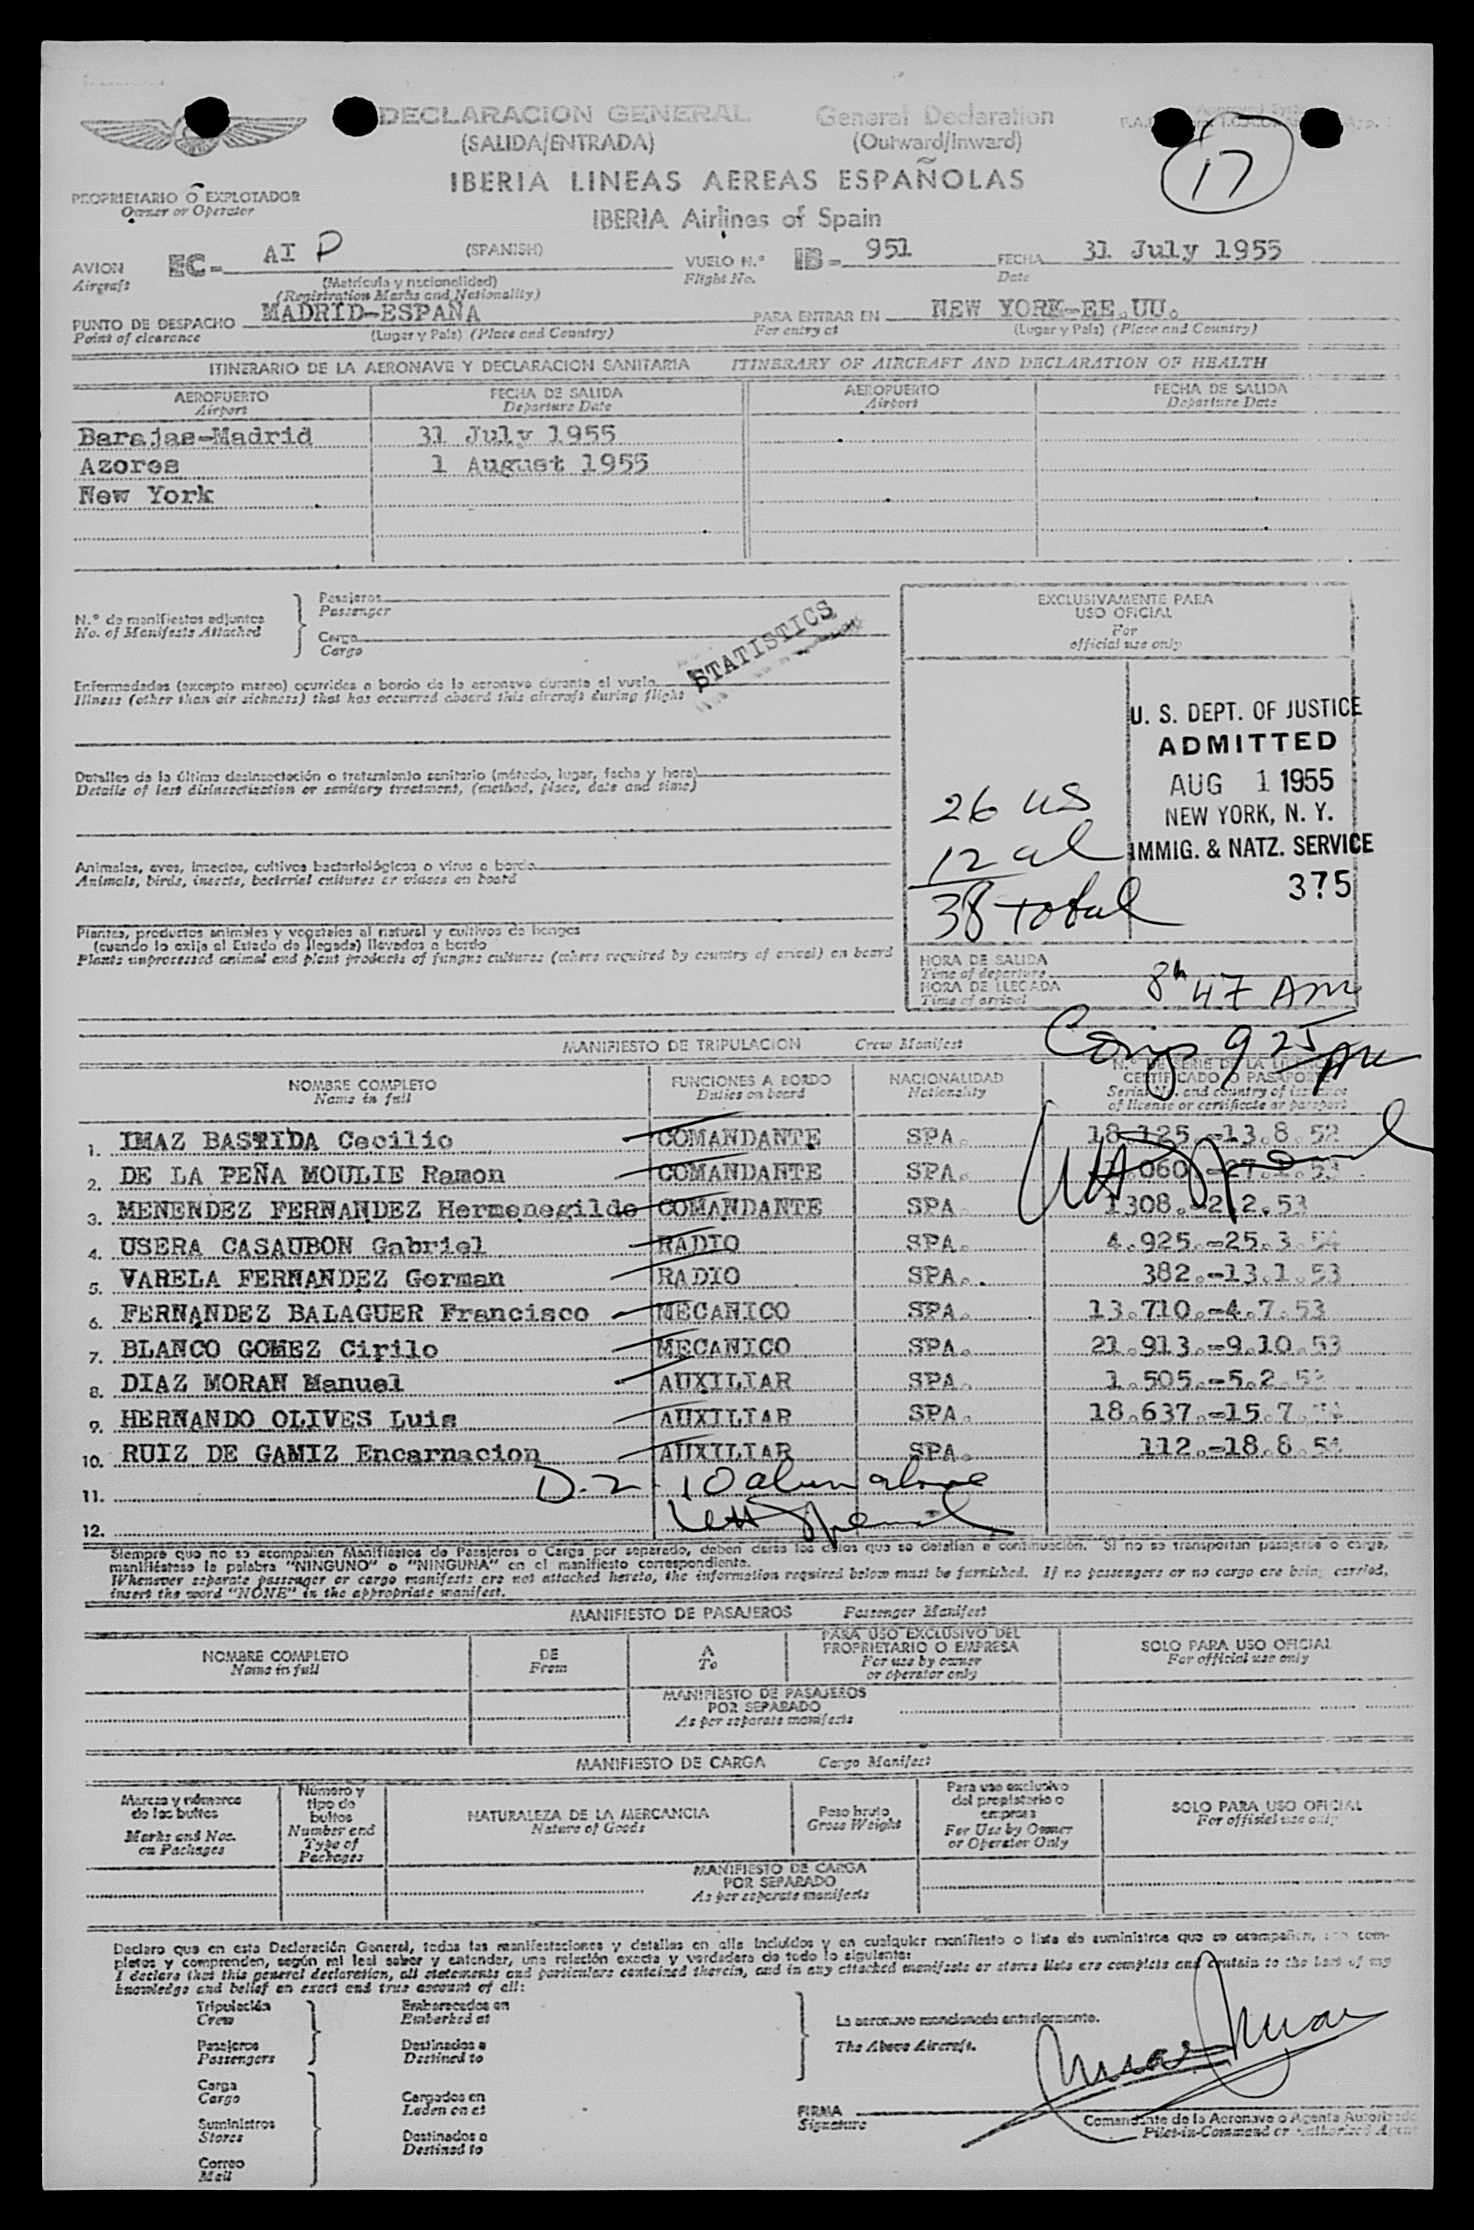 DECLARACION GENERAL General Declaration
(SALIDA/ENTRADA) (Outward/Inward)
17
IBERIA LINEAS AEREAS ESPAÑOLAS
PROPRIETARIO O EXPLOTADOR
Owner or Operator
IBERIA Airlines of Spain
AVION EC- AI P (SPANISH) VUELO N.° IB- 951 FECHA 31 July 1955
Aircraft (Matrícula y nacionalidad) Flight No. Date
(Registration Marks and Nationality)
PUNTO DE DESPACHO MADRID-ESPAÑA PARA ENTRAR EN NEW YORK-EE.UU.
Point of clearance (Lugar y País) (Place and Country) For entry at (Lugar y País) (Place and Country)
ITINERARIO DE LA AERONAVE Y DECLARACION SANITARIA ITINERARY OF AIRCRAFT AND DECLARATION OF HEALTH
AEROPUERTO FECHA DE SALIDA AEROPUERTO FECHA DE SALIDA
Airport Departure Date Airport Departure Date
Barajas-Madrid 31 July 1955
Azores 1 August 1955
New York
N.° de manifiestos adjuntos
No. of Manifests Attached
Pasajeros
Passenger
Carga
Cargo
STATISTICS
Enfermedades (excepto mareo) ocurridas a bordo de la aeronave durante el vuelo
Illness (other than air sickness) that has occurred aboard this aircraft during flight
Detalles de la última desinsectación o tratamiento sanitario (método, lugar, fecha y hora)
Details of last disinsectization or sanitary treatment, (method, place, date and time)
Animales, aves, insectos, cultivos bacteriológicos o virus a bordo
Animals, birds, insects, bacterial cultures or viuses on board
Plantas, productos animales y vegetales al natural y cultivos de hongos
(cuando lo exija el Estado de llegada) llevados a bordo
Plants unprocessed animal and plant products of fungus cultures (where required by country of arival) on board
EXCLUSIVAMENTE PARA
USO OFICIAL
For
official use only
U. S. DEPT. OF JUSTICE
ADMITTED
AUG 1 1955
NEW YORK, N. Y.
IMMIG. & NATZ. SERVICE
375
26 US
12 al
38 total
HORA DE SALIDA
Time of departure
HORA DE LLEGADA
Time of arrival
8h 47 AM
9 25 AM
MANIFIESTO DE TRIPULACION Crew Manifest
NOMBRE COMPLETO FUNCIONES A BORDO NACIONALIDAD N.° DE SERIE DE LA
Name in full Duties on board Nationality CERTIFICADO O PASAPORTE
Serial No. and country of
of license or certificate or passport
1. IMAZ BASTIDA Cecilio COMANDANTE SPA. 18.125.-13.8.52
2. DE LA PEÑA MOULIE Ramon COMANDANTE SPA. 060.-27.
3. MENENDEZ FERNANDEZ Hermenegildo COMANDANTE SPA. 1308.-2 2.53
4. USERA CASAUBON Gabriel RADIO SPA. 4.925.-25.3.54
5. VARELA FERNANDEZ German RADIO SPA. 382.-13.1.53
6. FERNANDEZ BALAGUER Francisco MECANICO SPA. 13.710.-4.7.53
7. BLANCO GOMEZ Cirilo MECANICO SPA. 21.913.-9.10.53
8. DIAZ MORAN Manuel AUXILIAR SPA. 1.505.-5.2.53
9. HERNANDO OLIVES Luis AUXILIAR SPA. 18.637.-15.7.
10. RUIZ DE GAMIZ Encarnacion AUXILIAR SPA. 112.-18.8.54
11. D.2. 10 above
12.
Siempre que no se acompañen Manifiestos de Pasajeros o Carga por separado, deben darse los datos que se detallan a continuación. Si no se transportan pasajeros o carga,
manifiéstese la palabra "NINGUNO" o "NINGUNA" en el manifiesto correspondiente.
Whenever separate passenger or cargo manifests are not attached hereto, the information required below must be furnished. If no passengers or no cargo are being carried,
insert the word "NONE" in the appropriate manifest.
MANIFIESTO DE PASAJEROS Passenger Manifest
NOMBRE COMPLETO DE A PARA USO EXCLUSIVO DEL SOLO PARA USO OFICIAL
Name in full From To PROPRIETARIO O EMPRESA For official use only
For use by owner
or operator only
MANIFIESTO DE PASAJEROS
POR SEPARADO
As per separate manifests
MANIFIESTO DE CARGA Cargo Manifest
Marcas y números
de los bultos
Marks and Nos.
on Packages
Número y
tipo de
bultos
Number and
Type of
Packages
NATURALEZA DE LA MERCANCIA
Nature of Goods
Peso bruto
Gross Weight
Para uso exclusivo
del propietario o
empresa
For Use by Owner
or Operator Only
SOLO PARA USO OFICIAL
For official use only
MANIFIESTO DE CARGA
POR SEPARADO
As per separate manifests
Declaro que en esta Declaración General, todas las manifestaciones y detalles en ella incluídos y en cualquier manifiesto o lista de suministros que se acompañen, son com-
pletos y comprenden, según mi leal saber y entender, una relación exacta y verdadera de todo lo siguiente:
I declare that this general declaration, all statements and particulars contained therein, and in any attached manifests or stores lists are complete and contain to the best of my
knowledge and belief an exact and true account of all:
Tripulación
Crew
Pasajeros
Passengers
Embarcados en
Embarked at
Destinados a
Destined to
La aeronave mencionada anteriormente.
The Above Aircraft.
Carga
Cargo
Suministros
Stores
Correo
Mail
Cargados en
Laden on at
Destinados a
Destined to
FIRMA
Signature
Comandante de la Aeronave o Agente Autorizado
Pilot-in-Command or Authorized Agent